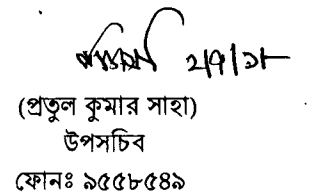 ২/৭/১৮
(প্রতুল কুমার সাহা)
উপসচিব
ফোনঃ ৯৫৫৮৫৪৯